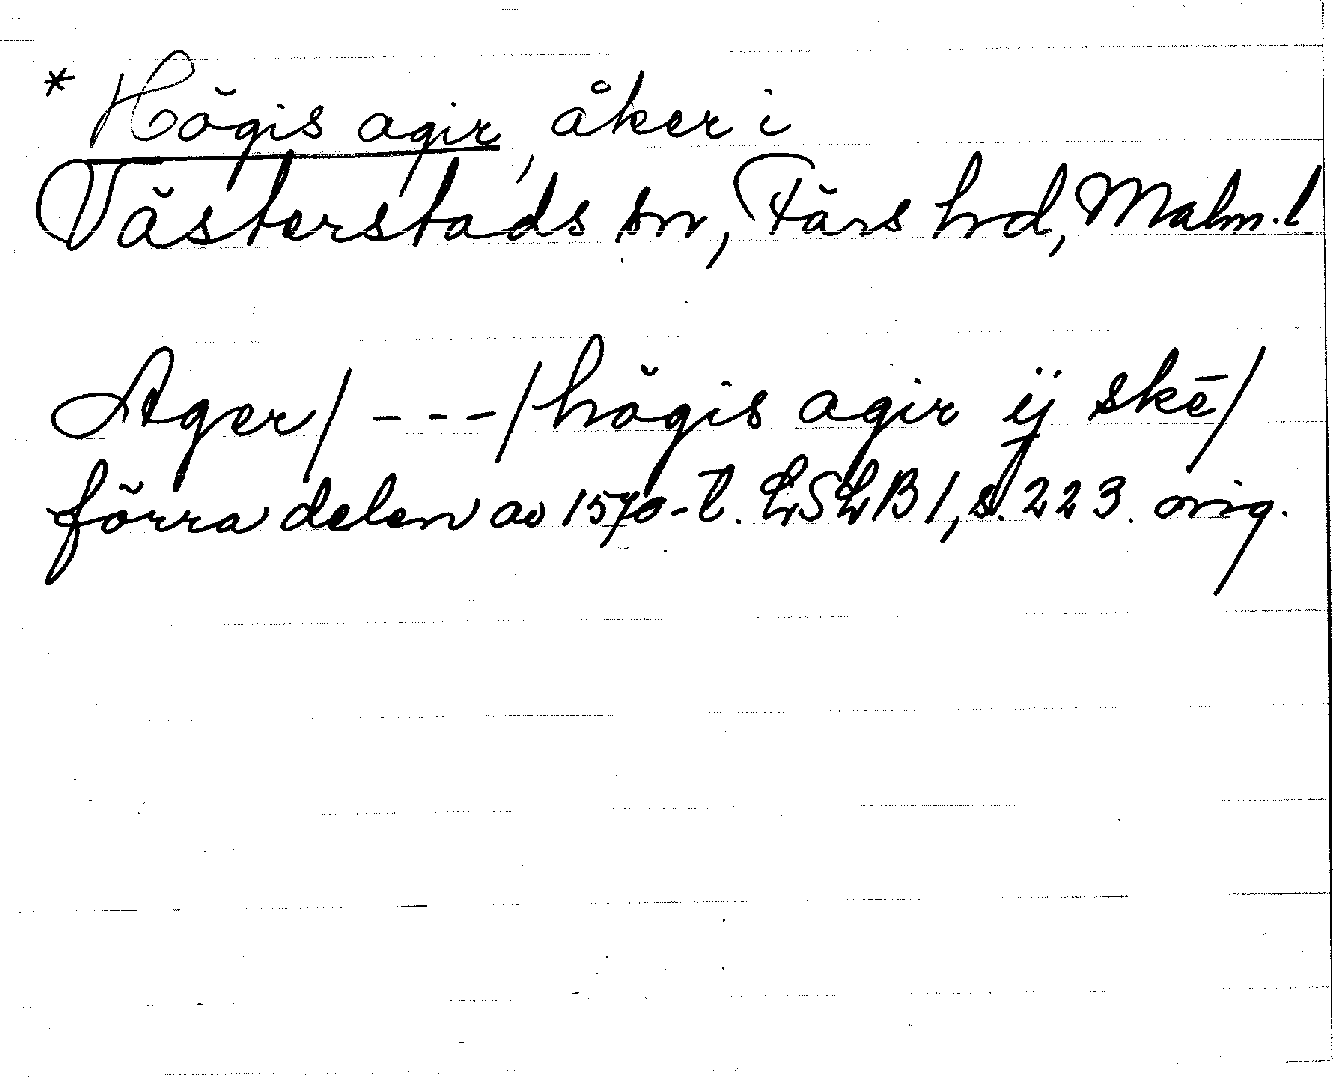 * Högis agir, åker i
Västerstads sn, Färs hd, Malm. l
Ager/ - - - / högis agir ij skē/
förra delen av 1570-t. LSLB 1, s. 223. orig.